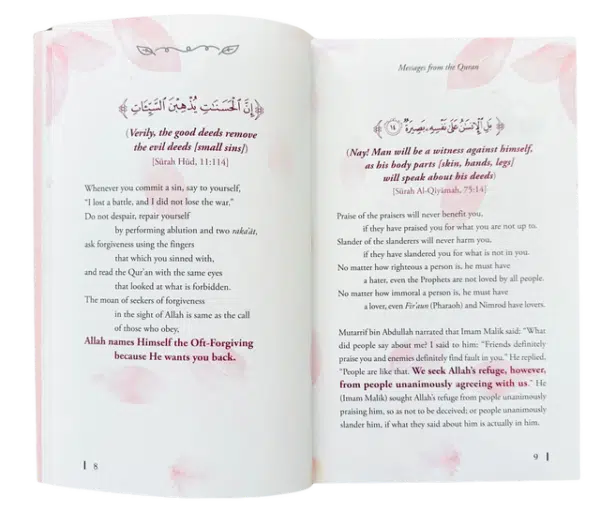 ﴿إِنَّ الْحَسَنَاتِ يُذْهِبْنَ السَّيِّئَاتِ﴾
(Verily, the good deeds remove
the evil deeds [small sins])
[Sūrah Hūd, 11:114]
Whenever you commit a sin, say to yourself,
“I lost a battle, and I did not lose the war.”
Do not despair, repair yourself
by performing ablution and two raka'āt,
ask forgiveness using the fingers
that which you sinned with,
and read the Qur'an with the same eyes
that looked at what is forbidden.
The moan of seekers of forgiveness
in the sight of Allah is same as the call
of those who obey,
Allah names Himself the Oft-Forgiving
because He wants you back.
8
Messages from the Quran
﴿بَلِ الْإِنسَانُ عَلَىٰ نَفْسِهِ بَصِيرَةٌ ١٤﴾
(Nay! Man will be a witness against himself,
as his body parts [skin, hands, legs]
will speak about his deeds)
[Sūrah Al-Qiyāmah, 75:14]
Praise of the praisers will never benefit you,
if they have praised you for what you are not up to.
Slander of the slanderers will never harm you,
if they have slandered you for what is not in you.
No matter how righteous a person is, he must have
a hater, even the Prophets are not loved by all people.
No matter how immoral a person is, he must have
a lover, even Fir'aun (Pharaoh) and Nimrod have lovers.
Mutarrif bin Abdullah narrated that Imam Malik said: “What
did people say about me? I said to him: “Friends definitely
praise you and enemies definitely find fault in you.” He replied,
“People are like that. We seek Allah's refuge, however,
from people unanimously agreeing with us.” He
(Imam Malik) sought Allah's refuge from people unanimously
praising him, so as not to be deceived; or people unanimously
slander him, if what they said about him is actually in him.
9